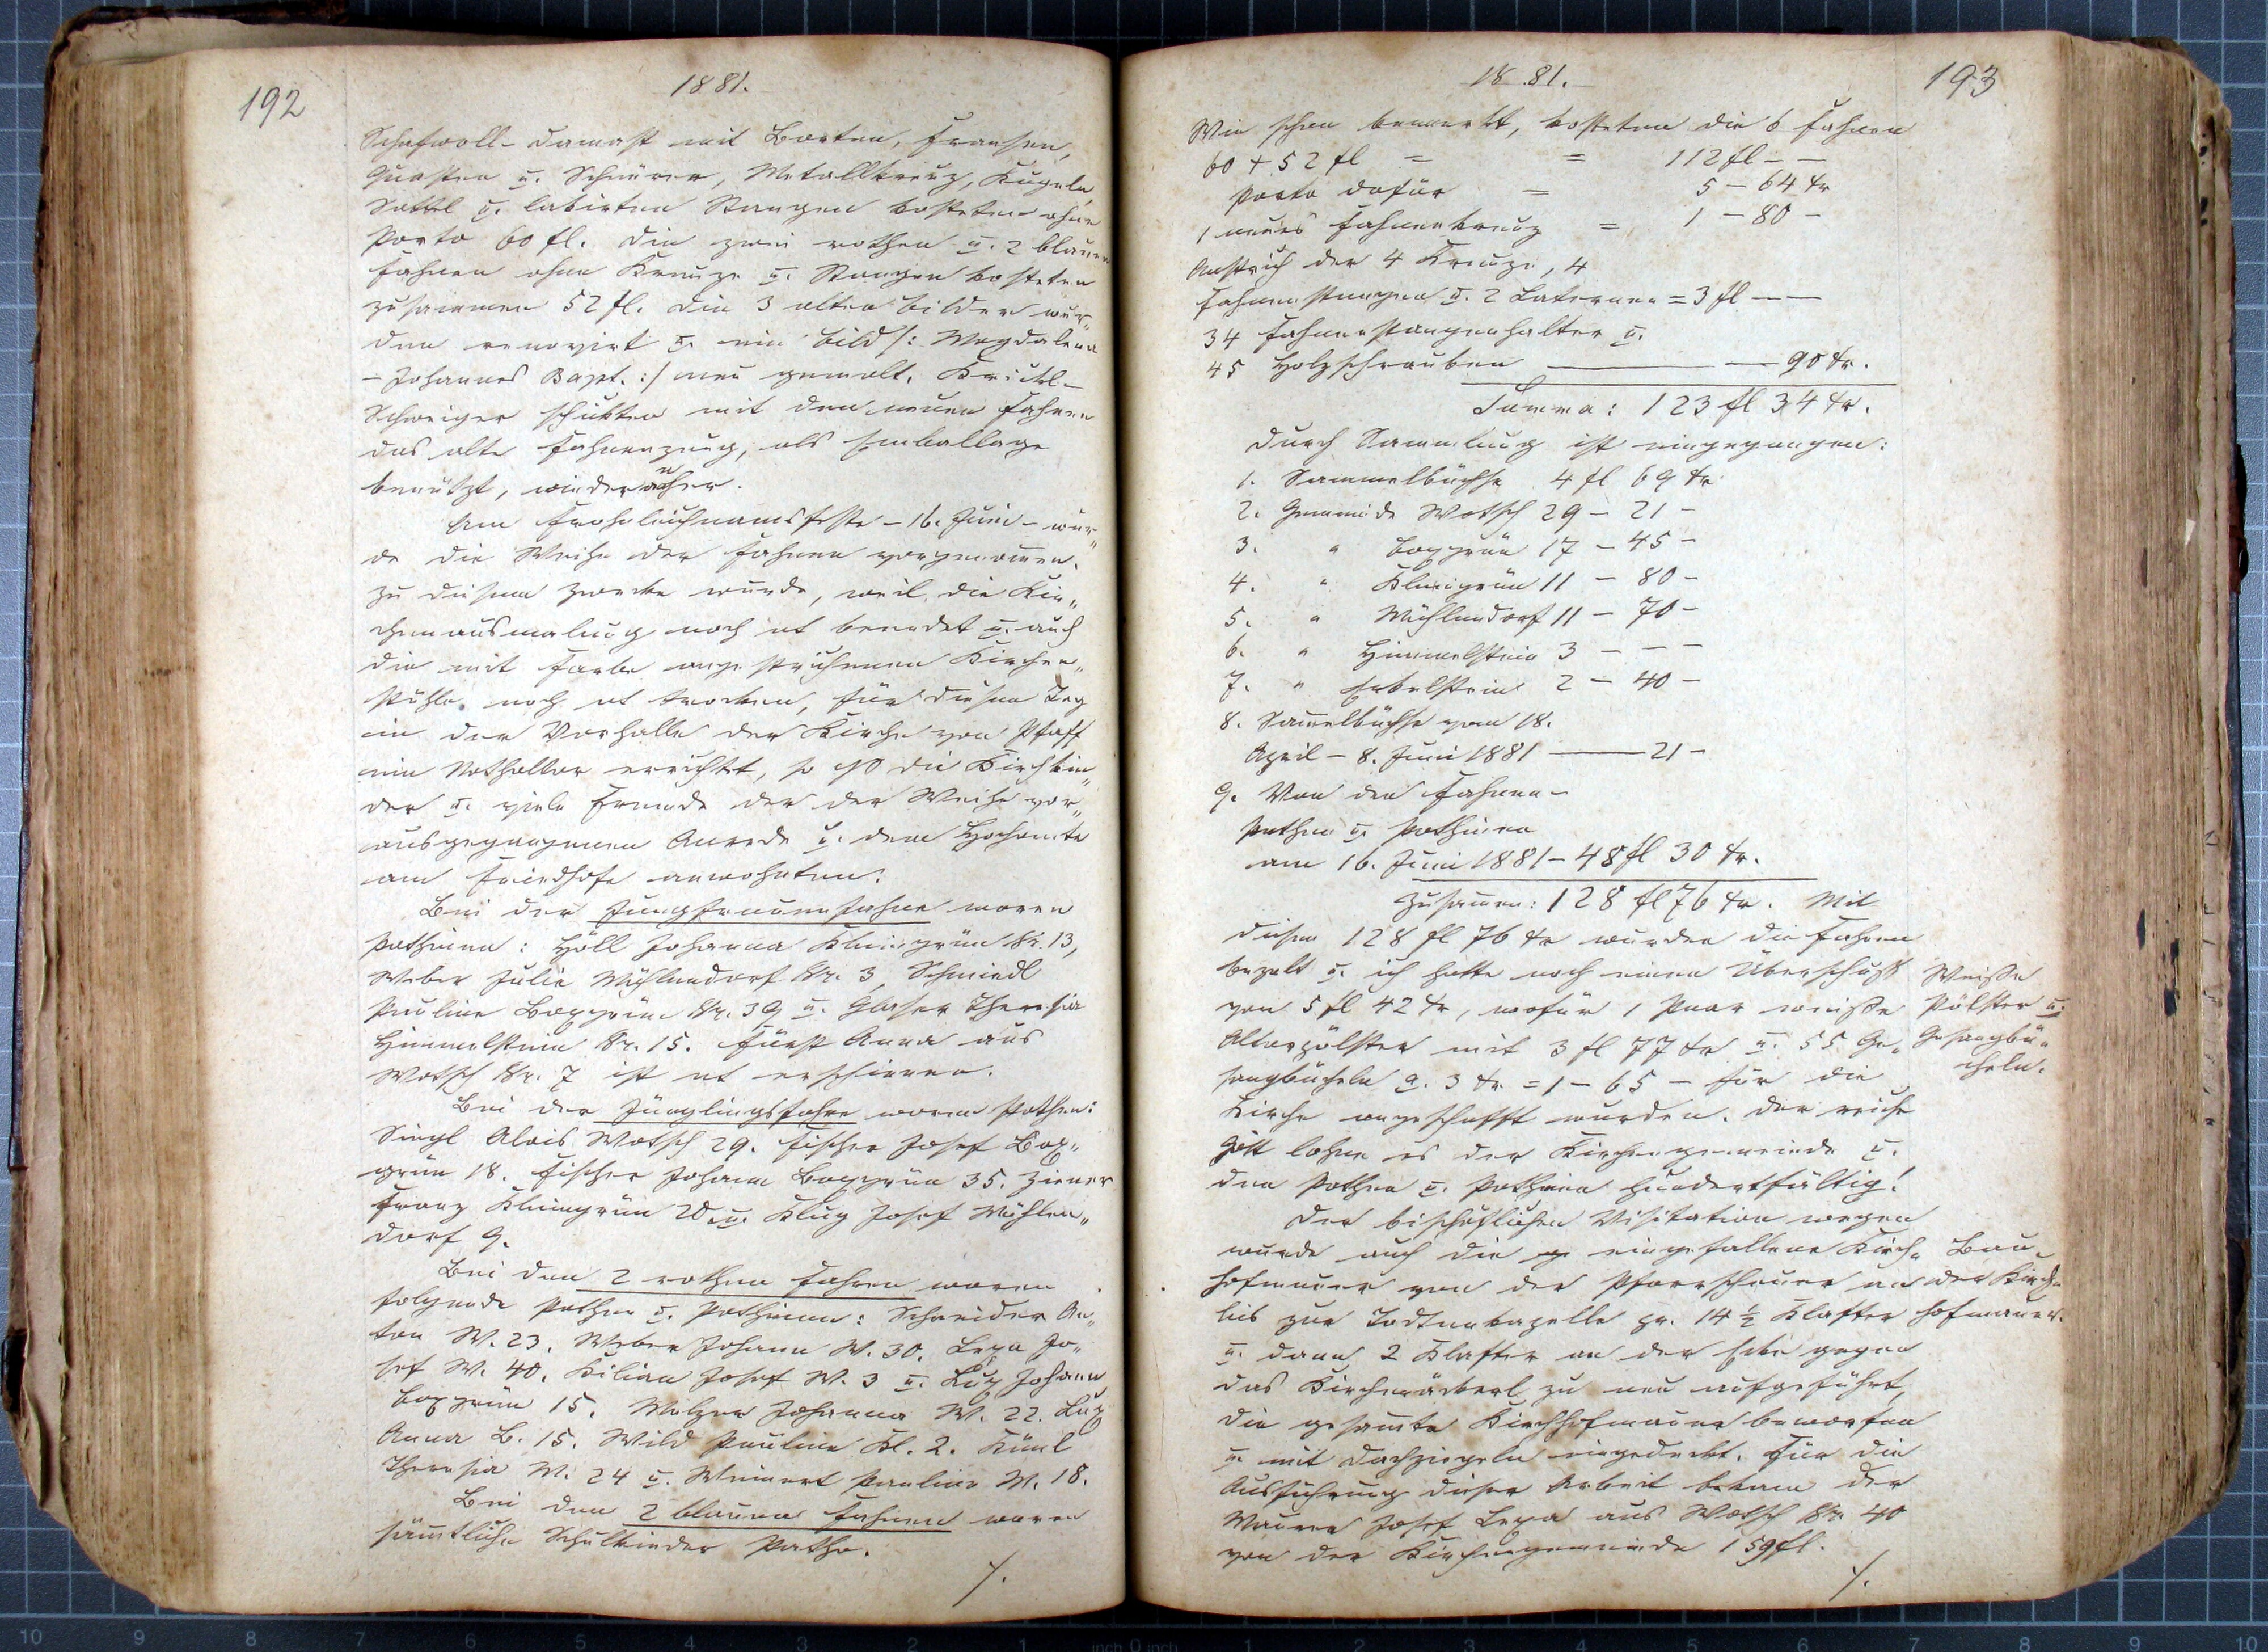 192
1881.
Schafwoll-Damast mit Borten, Fransen,
Quasten u. Schnüren, Metallkreuz, Kugeln,
Sattel u. lakirten Stangen kosteten ohne
Porto 60 fl. Die zwei rothen u. 2 blauen
Fahnen ohne Kreuze u. Stangen kosteten
zusammen 52 fl. Die 3 alten Bilder wur„
den renovirt u. ein Bild /: Magdalena
– Johannes Bapt. :/ neu gemalt.
Schweiger schickten mit den neuen Fahnen
das alte Fahnenzeug, als Emballage
benützt, wieder
Am Frohnleichnamsfeste – 16. Juni – wur„
de die Weihe der Fahnen vorgenomen.
Zu diesem Zwecke wurde, weil die Kir„
chenausmalung noch nt beendet u. auch
die mit Farbe angestrichenen Kirchen„
stühle noch nt trocken, für diesen Tag
in der Vorhalle der Kirche von Pfaff
ein Nothaltar errichtet, so die Kirchkin„
der u. viele Fremde der der Weihe vor„
ausgegangenen Anrede u. dem Hochamte
am Friedhofe anwohnten.
Bei der Jungfrauenfahne waren
Pathinen: Höll Johanna Kleingrün Nr. 13,
Weber Julie Mühlendorf Nr. 3, Schmiedl
Pauline Boxgrün Nr. 39 u. Glaser Theresia
Himmelstein Nr. 15. Fürst Anna aus
Wotsch Nr. 7 ist nt erschienen.
Bei der Jünglingsfahne waren Pathen:
Siegl Alois Wotsch 29. Fischer Josef Box„
grün 18. Fischer Johann Boxgrün 35. Ziener
Franz Kleingrün 20 u. Klug Josef Mühlen„
dorf 9.
Bei den 2 rothen Fahnen waren
folgende Pathen u. Pathinen: Schneider An„
ton W. 23. Weber Johann W. 30. Lexa Jo„
sef W. 40. Kilian Josef W. 3 u. Lux Johann
Boxgrün 15. Melzer Johanna W. 22. Lux
Anna B. 15. Wild Pauline Kl. 2.
Theresia W. 24 u. Weinert Pauline M. 18.
Bei den 2 blauen Fahnen waren
sämtliche Schulkinder Pathe.
/.
1881.
193
Wie schon bemerkt, kosteten die 6 Fahnen
60 + 52 fl = = 112 fl – –
Porto dafür = 5 – 64 kr
1 neues Fahnenkreuz = 1 – 80 –
Anstrich der 4 Kreuze, 4
Fahnenstangen u. 2 Laternen = 3 fl – –
34 Fahnenstangenhalter u.
45 Holzschrauben — — 90 kr.
Summa: 123 fl 34 kr.
Durch Sammlung ist eingegangen:
1. Sammelbüchse 4 fl 69 kr
2. Gemeinde Wotsch 29 – 21 –
3. " Boxgrün 17 – 45 –
4. " Kleingrün 11 – 80 –
5. " Mühlendorf 11 – 70 –
6. " Himmelstein 3 – – –
7. " Erbelstein 2 – 40 –
8. Samelbüchse vom 18.
April – 8. Juni 1881 — 21 –
9. Von den Fahnen-
pathen u. Pathinen
am 16. Juni 1881 – 48 fl 30 kr.
Zusamen: 128 fl 76 kr. Mit
diesen 128 fl 76 kr wurden die Fahnen
bezalt u. ich hatte noch einen Überschuß
von 5 fl 42 kr, wofür 1 Paar weiße
Altarpölster mit 3 fl 77 kr u. 55 Ge„
sangbücheln a. 3 kr = 1 – 65 – für die
Kirche angeschafft wurden. Der reiche
Gott lohne es der Kirchengemeinde u.
den Pathen u. Pathinen hundertfältig!
Weisse
Pölster u.
Gesangbü„
cheln.
Der bischöflichen Visitation wegen
wurde auch die eingefallene Kirch„
hofmauer von der Pfarrscheuer an
bis zur Todtenkapelle pr. 14 ½ Klafter
u. dann 2 Klafter an der Ecke gegen
das Kirchenäckerl zu neu aufgeführt,
die gesamte Kirchhofmauer beworfen
u. mit Dachziegeln eingedeckt. Für die
Ausführung dieser Arbeit bekam der
Maurer Josef Lexa aus Wotsch Nr. 40
von der Kirchengemeinde 159 fl.
Bau„
der Kirch„
hofmauer.
/.